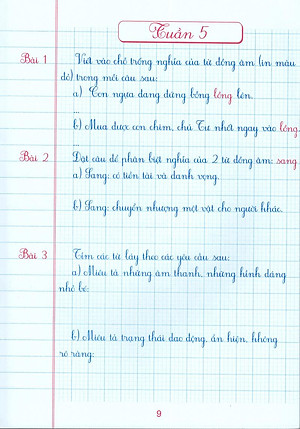 Tuần 5
Bài 1 Viết vào chỗ trống nghĩa của từ đồng âm (in màu
đỏ) trong mỗi câu sau:
a) Con ngựa đang đứng bỗng lồng lên.
...
b) Mua được con chim, chú Tư nhốt ngay vào lồng.
Bài 2 Đặt câu để phân biệt nghĩa của 2 từ đồng âm: sang
a) Sang: có tiền tài và danh vọng.
b) Sang: chuyển nhượng một vật cho người khác.
Bài 3 Tìm các từ láy theo các yêu cầu sau:
a) Miêu tả những âm thanh, những hình dáng
nhỏ bé:
b) Miêu tả trạng thái dao động, ẩn hiện, không
rõ ràng:
9